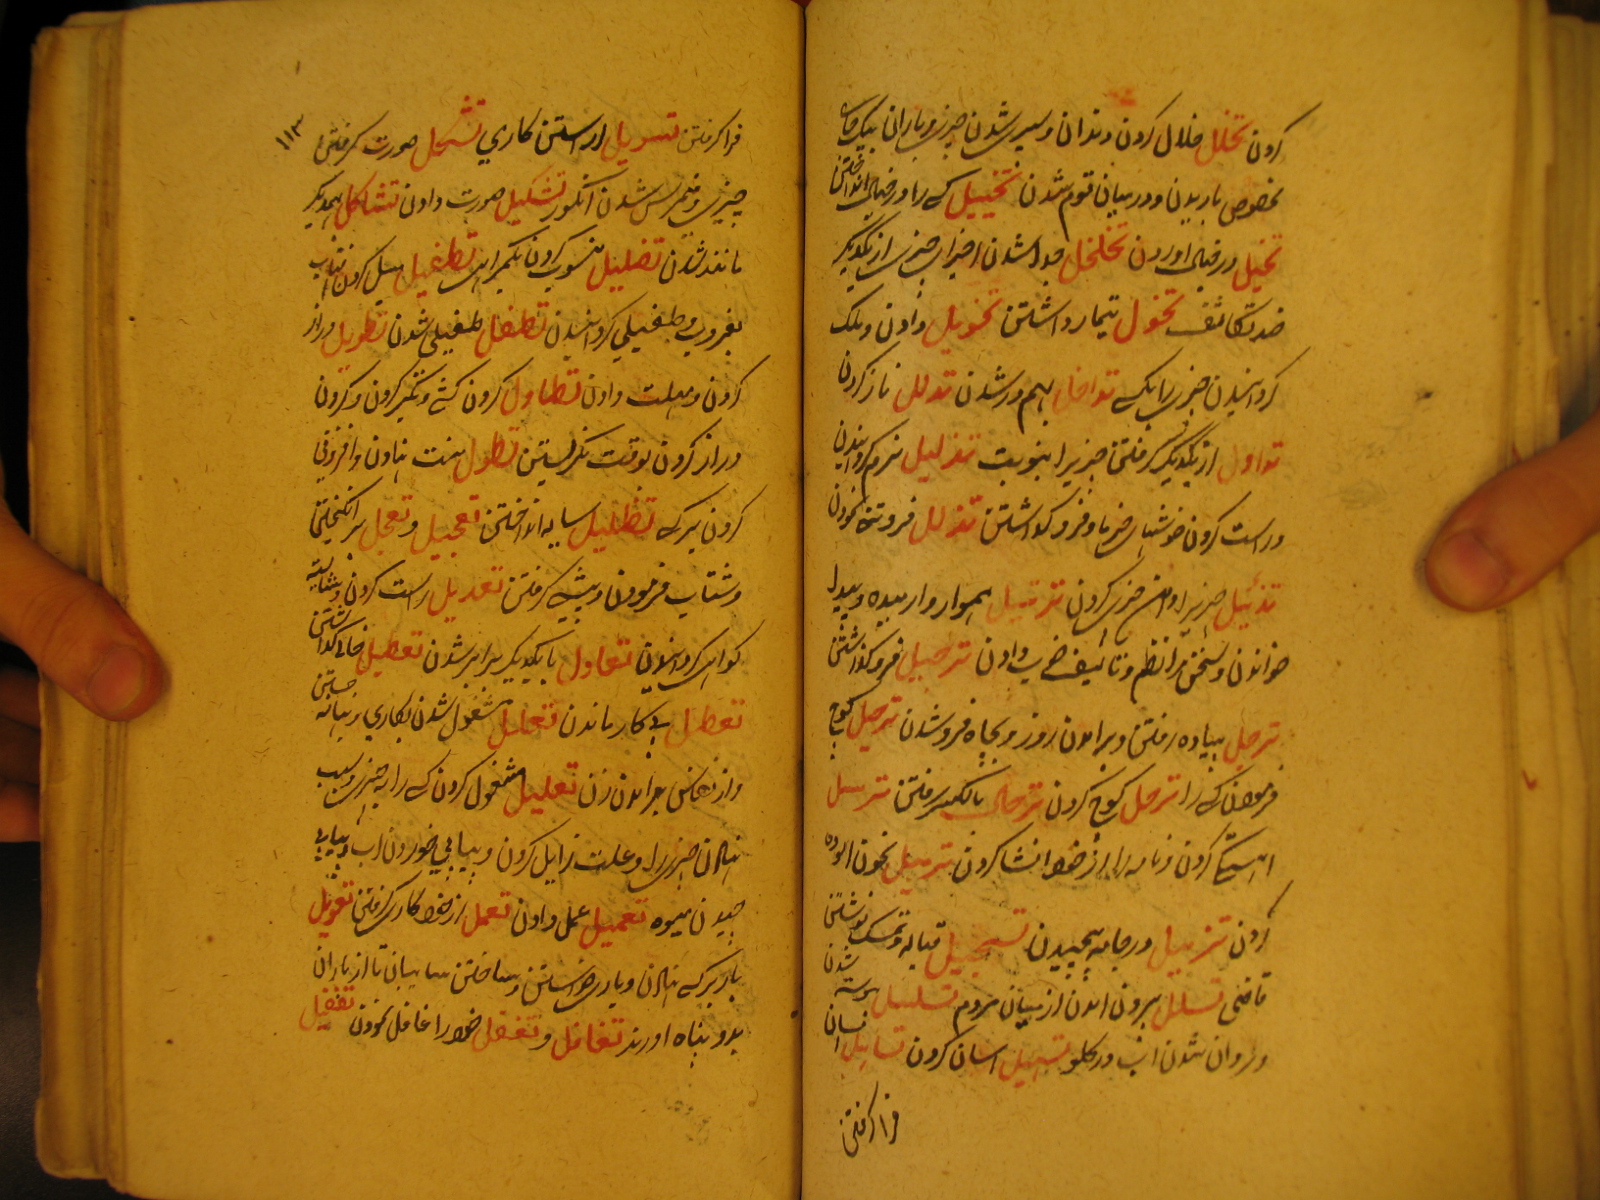 كردن تخلل خلال كردن دندان و سپری شدن چیزی و باران بیک جای
مخصوص باریدن و در میان قوم شدن تخییل کسے را در خیال انداختن
تخیل در خیال اوردن تخلخل جدا شدن اجزای چیزی از یکدیگر
ضد تکاثف تخول تیمار داشتن تخویل دادن و ملک
کردانیدن چیزی را بکسے تداخل بهم در شدن تدلل ناز کردن
تداول از یکدیگر گرفتن چیزیرا بنوبت تذلیل نرم کردانیدن
و راست کردن خوشهای خرما و فرو کذاشتن تذلل فروتنی نمودن
تذئیل چیزیرا دامن کردن ترتیل هموار و ارمیده و پیدا
خواندن و سخن را نظم و تالیف خوب دادن ترجیل فرو کذاشتن
ترجل پیاده رفتن و برامدن روز و بچاه فرو شدن ترحیل کوچ
فرمودن کسے را ترحل کوچ کردن ترسل
اهستگی کردن و نامه را از خود انشا کردن ترمیل بخون الوده
کردن تزمیل در جامه پیچیدن تسجیل قباله و تمسک نوشتن
قاضی تسلل بیرون امدن از میان مردم تسلسل پیوسته شدن
و روان شدن اب در کلو تسهیل اسان کردن تساهل اسان
فرا کرفتن
۱۱۳
فرا کرفتن تسویل اراستن کاری تشکل صورت کرفتن
چیزی و نیمرس شدن انکور تشکیل صورت دادن تشاکل بیکدیکر
مانند شدن تضلیل منسوب کردن بکمراهی تطفیل میل کردن افتاب
بغروب و طفیلی کردانیدن تطفل طفیلی شدن تطویل دراز
کردن و مهلت دادن تطاول کردن کشی و تکبر کردن و کردن
دراز کردن بوقت نکریستن تطول منت نهادن و افزونی
کردن بر کسے تظلیل سایه انداختن تعجیل و تعجل بر انکیختن
و شتاب فرمودن و پیشی کرفتن تعدیل راست کردن و شایسته
کواهی کردانیدن تعادل با یکدیکر برابر شدن تعطیل خالی کذاشتن
تعطل بے کار ماندن تعلل مشغول شدن بکاری و بهانه جستن
و از نفاس برامدن زن تعلیل مشغول کردن کسے را بچیزی و سبب
نهادن چیزی را و علت زایل کردن و پیاپی خوردن اب و پیاپی
چیدن میوه تعمیل عمل دادن تعمل از خود کاری کرفتن تعویل
بار بر کسے نهادن و یاری خواستن و ساختن سایبانی تا از باران
بدو پناه اورند تغافل و تغفل خود را غافل نمودن تغفیل